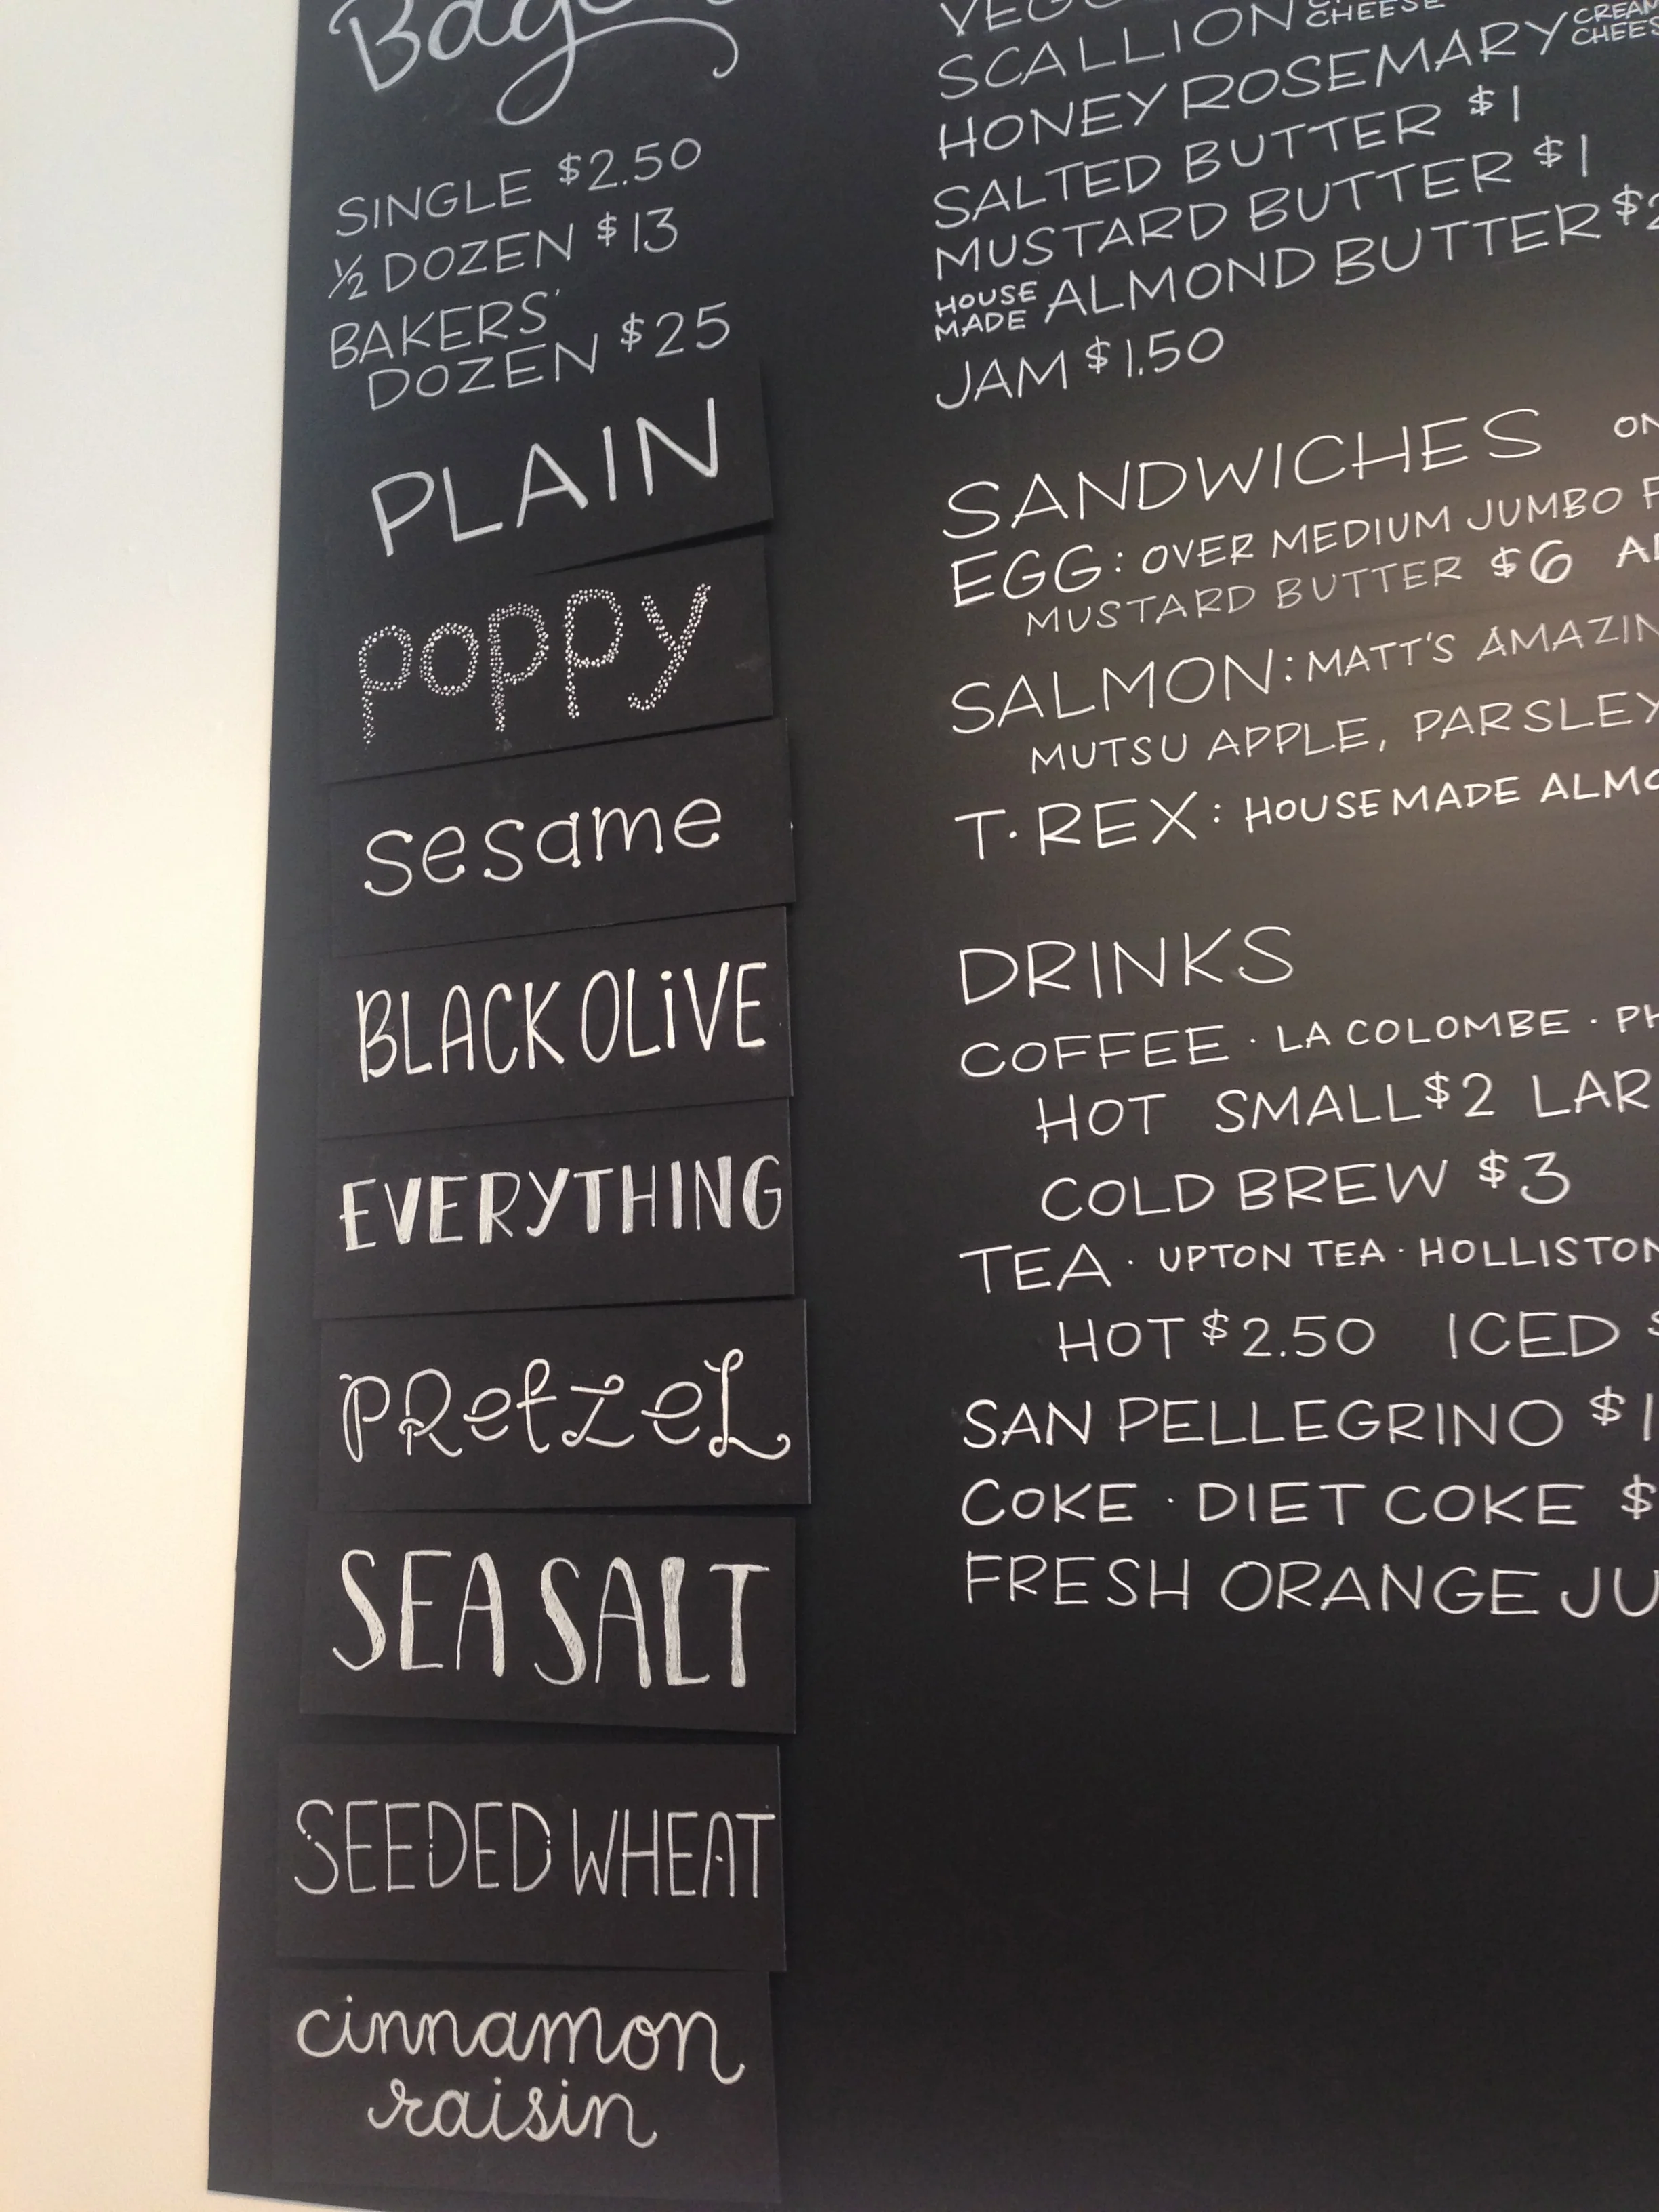 SINGLE $2.50
½ DOZEN $13
BAKERS'
DOZEN $25
PLAIN
poppy
sesame
BLACK OLiVE
EVERYTHING
PRetzeL
SEA SALT
SEEDED WHEAT
cinnamon
raisin
SCALLION CHEESE
HONEY ROSEMARY CREAM
SALTED BUTTER $1
MUSTARD BUTTER $1
HOUSE MADE ALMOND BUTTER
JAM $1.50
SANDWICHES
EGG: OVER MEDIUM JUMBO
MUSTARD BUTTER $6
SALMON: MATT'S
MUTSU APPLE, PARSLEY
T·REX: HOUSEMADE
DRINKS
COFFEE · LA COLOMBE ·
HOT SMALL $2
COLD BREW $3
TEA · UPTON TEA · HOLLISTON
HOT $2.50 ICED
SAN PELLEGRINO
COKE · DIET COKE $
FRESH ORANGE